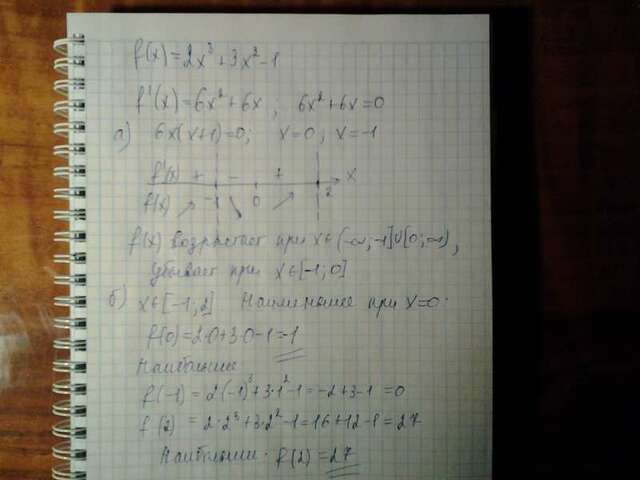 f(x) = 2x³ + 3x² - 1
f'(x) = 6x² + 6x ; 6x² + 6x = 0
а) 6x(x+1) = 0; x = 0; x = -1
f'(x) + - + x
f(x) -1 0 2
f(x) возрастает при x ∈ (-∞; -1] ∪ [0; ∞),
убывает при x ∈ [-1; 0]
б) x ∈ [-1; 2] Наименьшее при x = 0.
f(0) = 2·0 + 3·0 - 1 = -1
Наибольшее
f(-1) = 2(-1)³ + 3·1² - 1 = -2 + 3 - 1 = 0
f(2) = 2·2³ + 3·2² - 1 = 16 + 12 - 1 = 27
Наибольшее. f(2) = 27